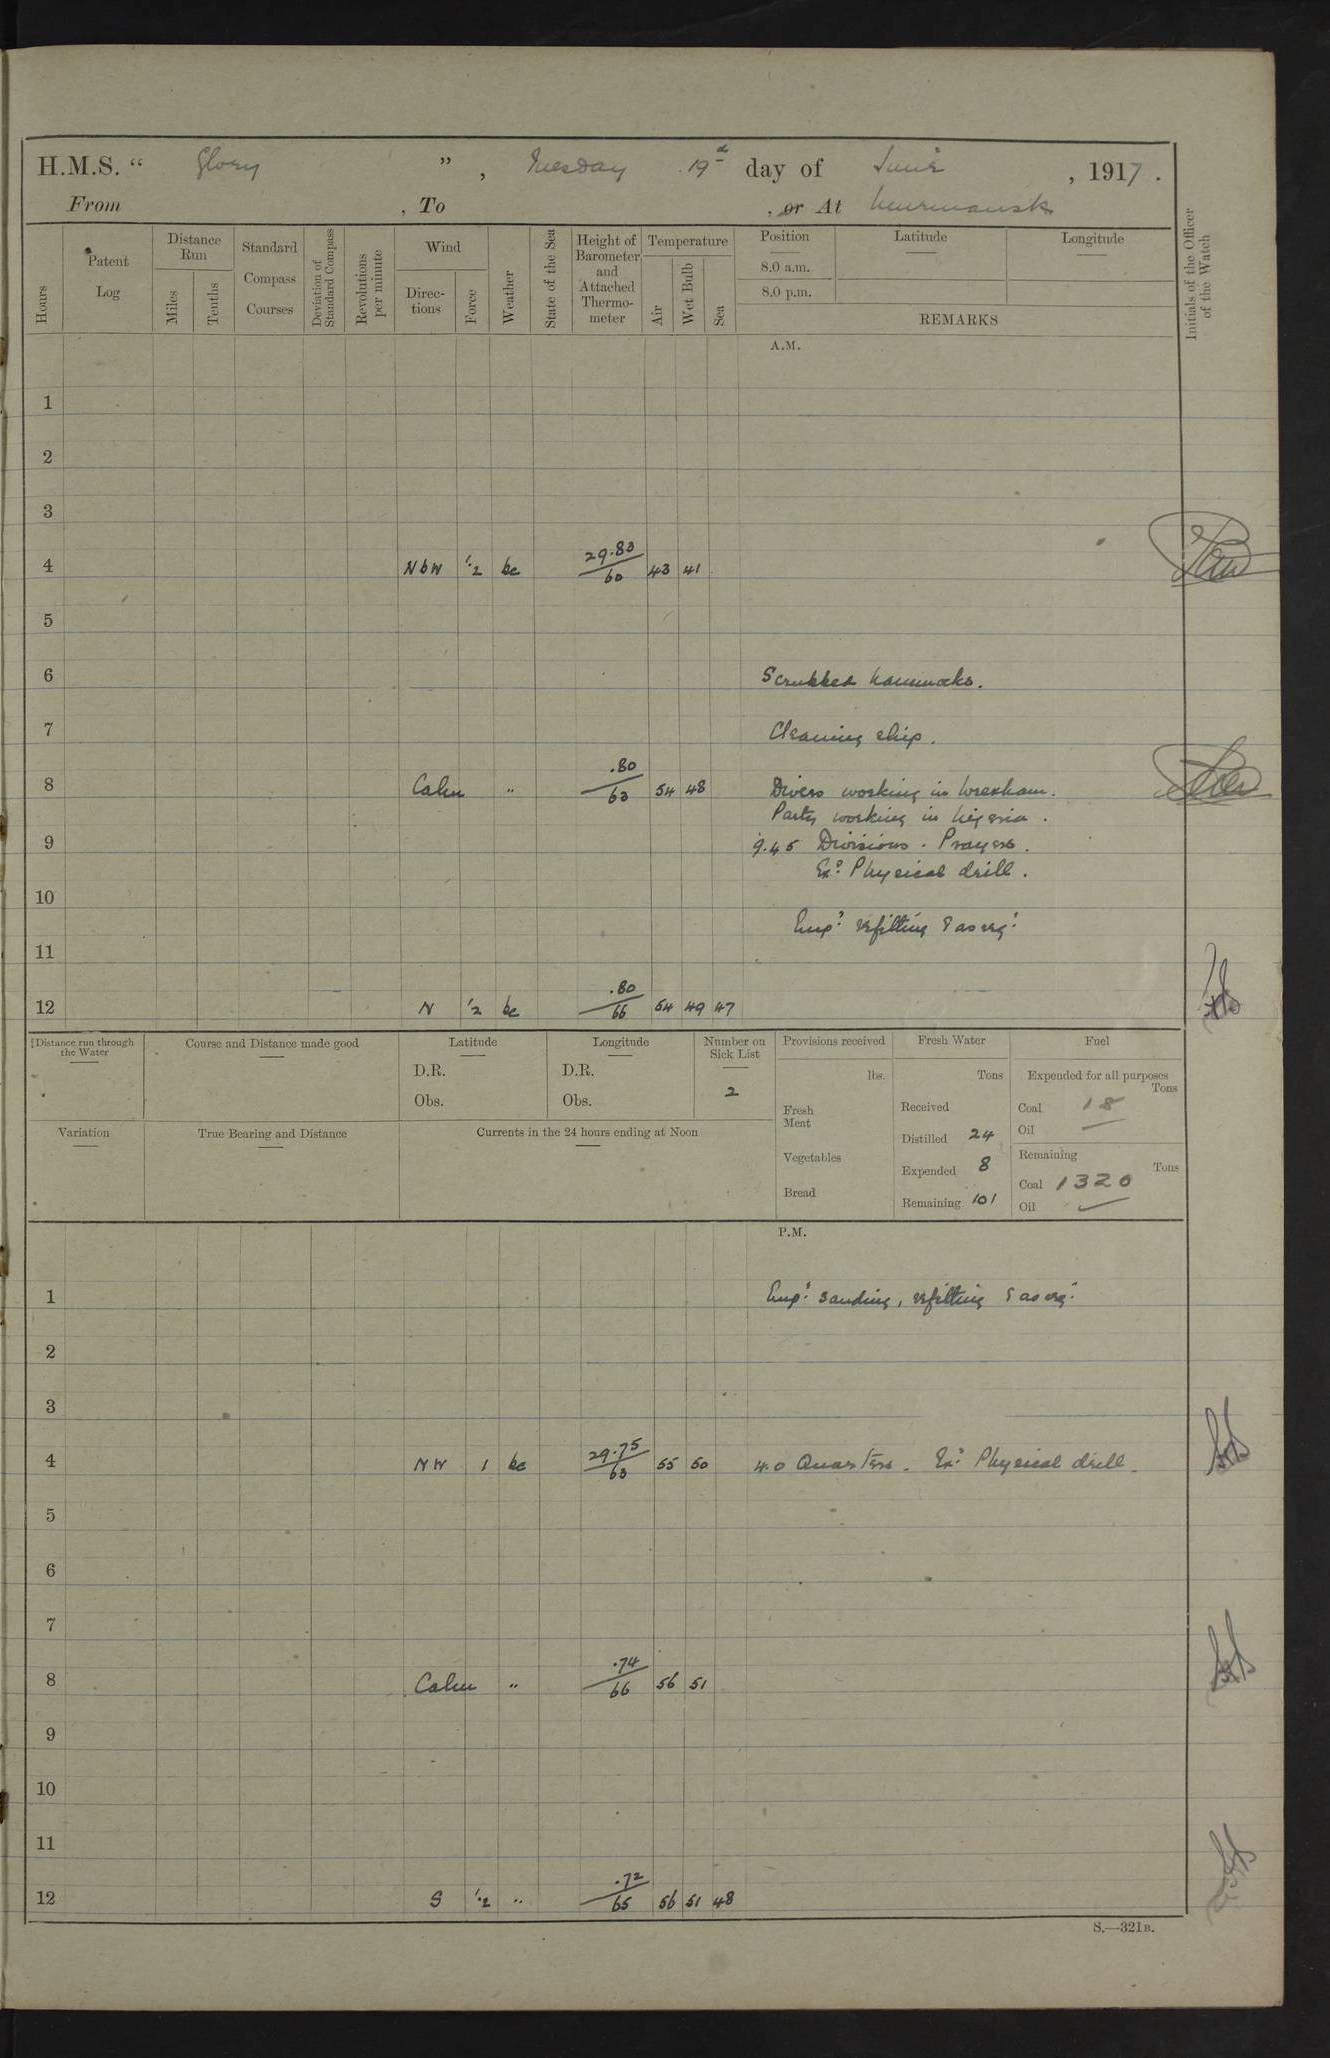 H.M.S. “ Glory ”, Tuesday 19th day of June, 1917.
From , To , or At Murmansk
Hours
Patent Log
Distance Run
Miles
Tenths
Standard Compass Courses
Deviation of Standard Compass
Revolutions per minute
Wind
Directions
Force
Weather
State of the Sea
Height of Barometer and Attached Thermometer
Temperature
Air
Wet Bulb
Sea
Position
8.0 a.m.
8.0 p.m.
Latitude
Longitude
REMARKS
Initials of the Officer of the Watch
A.M.
1
2
3
4 NbW 1.2 bc 29.83/60 43 41
5
6 Scrubbed hammocks.
7 Cleaning ship.
8 Calm " .80/63 54 48 Divers working in Wrexham.
Party working in Nigeria.
9 9.45 Divisions. Prayers.
Exd Physical drill.
10
Empd refitting & as req:
11
12 N 1.2 bc .80/66 54 49 47
Distance run through the Water
Course and Distance made good
Latitude
D.R.
Obs.
Longitude
D.R.
Obs.
Number on Sick List
2
Provisions received
lbs.
Fresh Meat
Vegetables
Bread
Fresh Water
Tons
Received
Distilled 24
Expended 8
Remaining 101
Fuel
Expended for all purposes
Tons
Coal 18
Oil
Remaining
Tons
Coal 1320
Oil
Variation
True Bearing and Distance
Currents in the 24 hours ending at Noon
P.M.
1 Empd sanding, refitting & as req:
2
3
4 NW 1 bc 29.75/63 55 50 4.0 Quarters. Exd Physical drill.
5
6
7
8 Calm " .74/66 56 51
9
10
11
12 S 1.2 " .72/65 56 51 48
S.—321B.